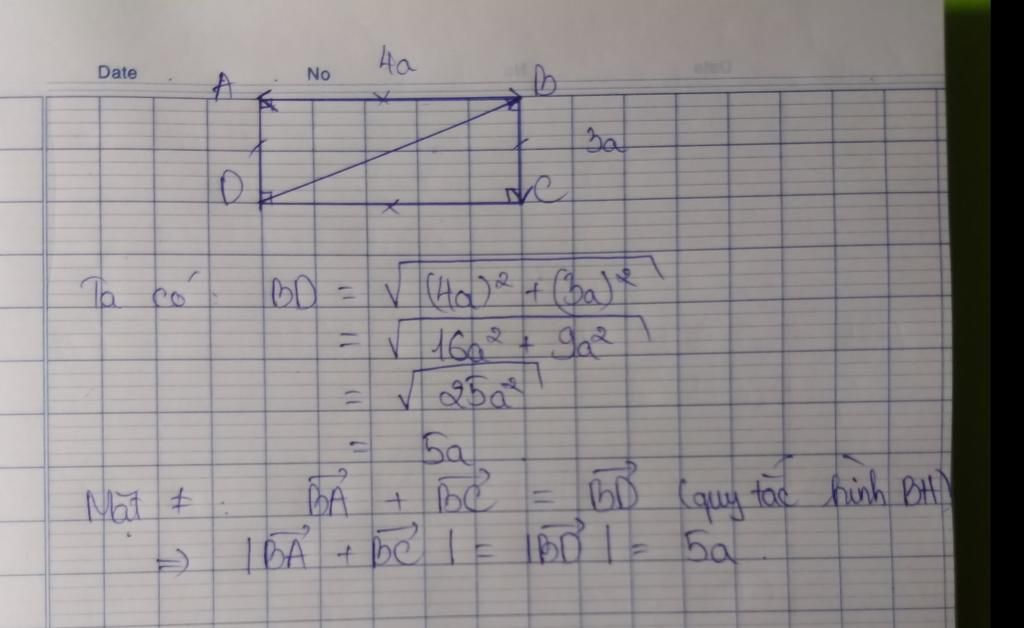 Date No 4a
A B
3a
D C
Ta có: BD = √(4a)² + (3a)²
= √16a² + 9a²
= √25a²
= 5a
Mặt ≠: BA→ + BC→ = BD→ (quy tắc hình BH)
⇒ |BA→ + BC→| = |BD→| = 5a.